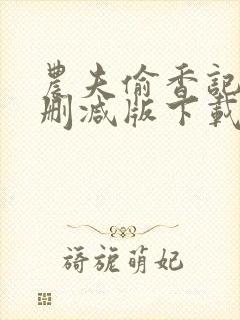 農夫偷香記
刪減版下載
旖旎萌妃